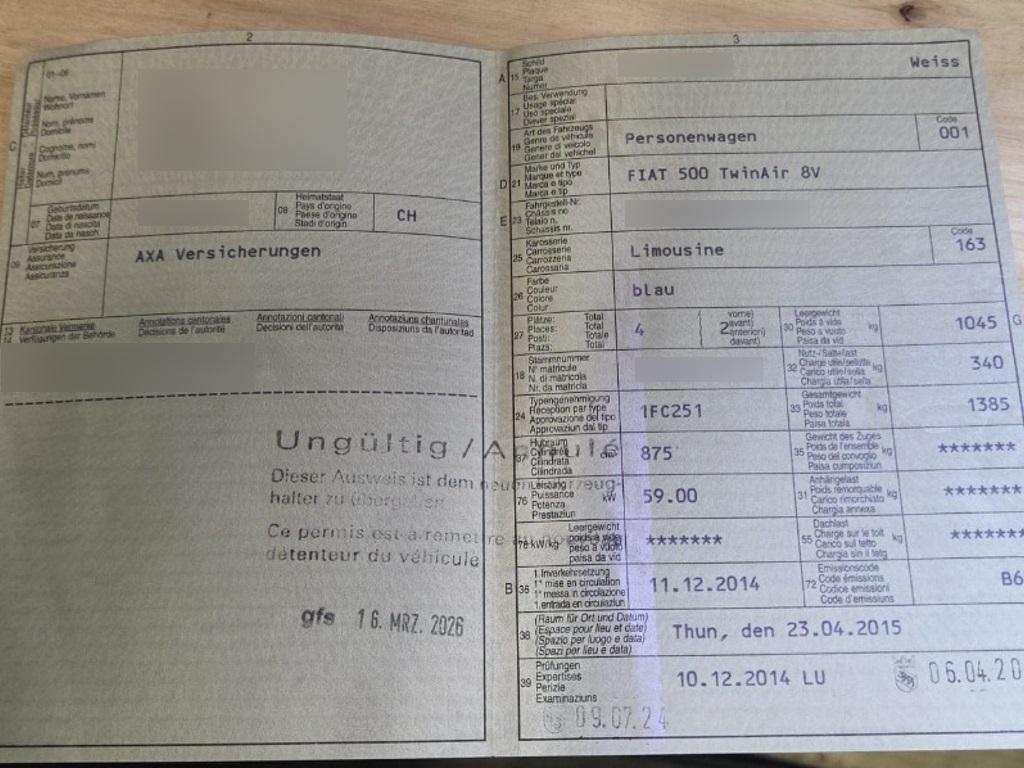 2
01-06
Name, Vornamen
Wohnort
Nom, prénoms
Domicile
Cognome, nomi
Domicilio
Num, prenums
Domicil
C
07
Geburtsdatum
Date de naissance
Data di nascita
Data da nasch.
08
Heimatstaat
Pays d'origine
Paese d'origine
Stadi d'origin
CH
09
Versicherung
Assurance
Assicurazione
Assicuranza
AXA Versicherungen
Kantonale Vermerke
Verfügungen der Behörde
Annotations cantonales
Décisions de l'autorité
Annotazioni cantonali
Decisioni dell'autorità
Annotaziuns chantunalas
Disposiziuns da l'autoritad
Ungültig / Annulé
Dieser Ausweis ist dem neuen Fahrzeug-
halter zu übergeben
Ce permis est à remettre au nouveau
détenteur du véhicule
gfs 16. MRZ. 2026
3
A 15
Schild
Plaque
Targa
Numer
Weiss
17
Bes. Verwendung
Usage spécial
Uso speciale
Diever spezial
19
Art des Fahrzeugs
Genre de véhicule
Genere di veicolo
Gener dal vehichel
Personenwagen
Code
001
D 21
Marke und Typ
Marque et type
Marca e tipo
Marca e tip
FIAT 500 TwinAir 8V
E 23
Fahrgestell-Nr.
Châssis no
Telaio n.
Schassis nr.
25
Karosserie
Carrosserie
Carrozzeria
Carossaria
Limousine
Code
163
26
Farbe
Couleur
Colore
Colur
blau
27
Plätze: Total
Places: Total
Posti: Totale
Plazs: Total
4
2
vorne)
avant)
anteriori)
davant)
30
Leergewicht
Poids à vide
Peso a vuoto
Paisa da vid
kg
1045
G
18
Stammnummer
N° matricule
N. di matricola
Nr. da matricla
32
Nutz-/Sattellast
Charge utile/sellette
Carico utile/sella
Chargia utila/sella
kg
340
24
Typengenehmigung
Réception par type
Approvazione del tipo
Approvaziun dal tip
1FC251
33
Gesamtgewicht
Poids total
Peso totale
Paisa totala
kg
1385
37
Hubraum
Cylindrée
Cilindrata
Cilindrada
875
35
Gewicht des Zuges
Poids de l'ensemble
Peso del convoglio
Paisa cumposiziun
kg
*******
76
Leistung
Puissance
Potenza
Prestaziun
kW
59.00
31
Anhängelast
Poids remorquable
Carico rimorchiato
Chargia annexa
kg
*******
78 kW/kg
Leergewicht
poids à vide
peso a vuoto
paisa da vid
*******
55
Dachlast
Charge sur le toit
Carico sul tetto
Chargia sin il tetg
kg
*******
B 36
1. Inverkehrsetzung
1re mise en circulation
1a messa in circolazione
1. entrada en circulaziun
11.12.2014
72
Emissionscode
Code émissions
Codice emissioni
Code d'emissiuns
B6
38
(Raum für Ort und Datum)
(Espace pour lieu et date)
(Spazio per luogo e data)
(Spazi per lieu e data)
Thun, den 23.04.2015
39
Prüfungen
Expertises
Perizie
Examinaziuns
10.12.2014 LU
06.04.20
09.07.24